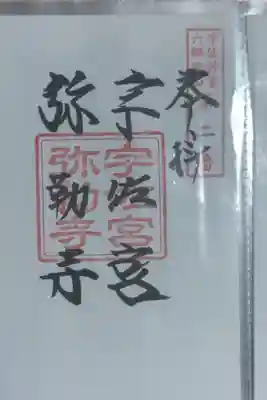 奉拝
宇佐宮
弥勒寺
宇佐宮
弥勒寺